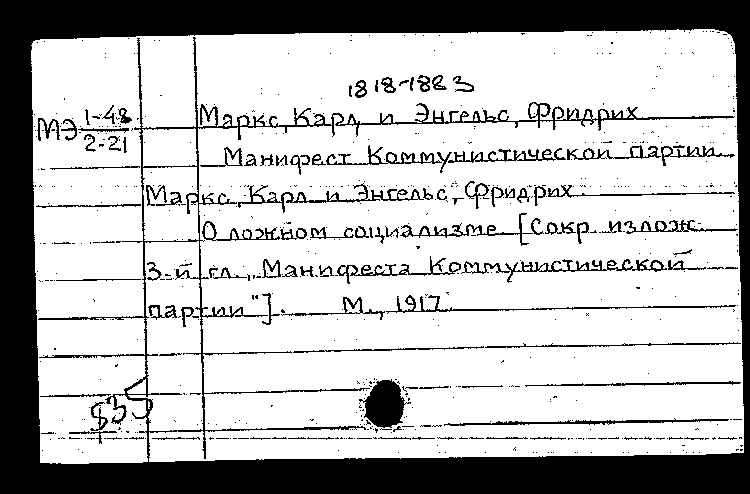 1818-1883
МЭ 1-48 Маркс, Карл и Энгельс, Фридрих
2-21
Манифест Коммунистической партии
Маркс, Карл и Энгельс, Фридрих
О ложном социализме [Сокр. излож.
3-й гл. „Манифеста Коммунистической
партии"]. М., 1917.
535